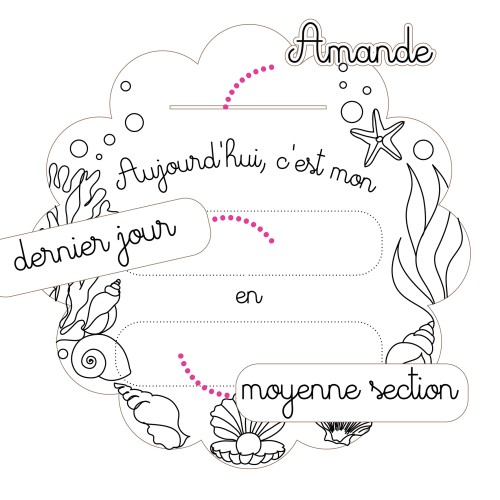 Amande
Aujourd'hui, c'est mon
dernier jour
en
moyenne section